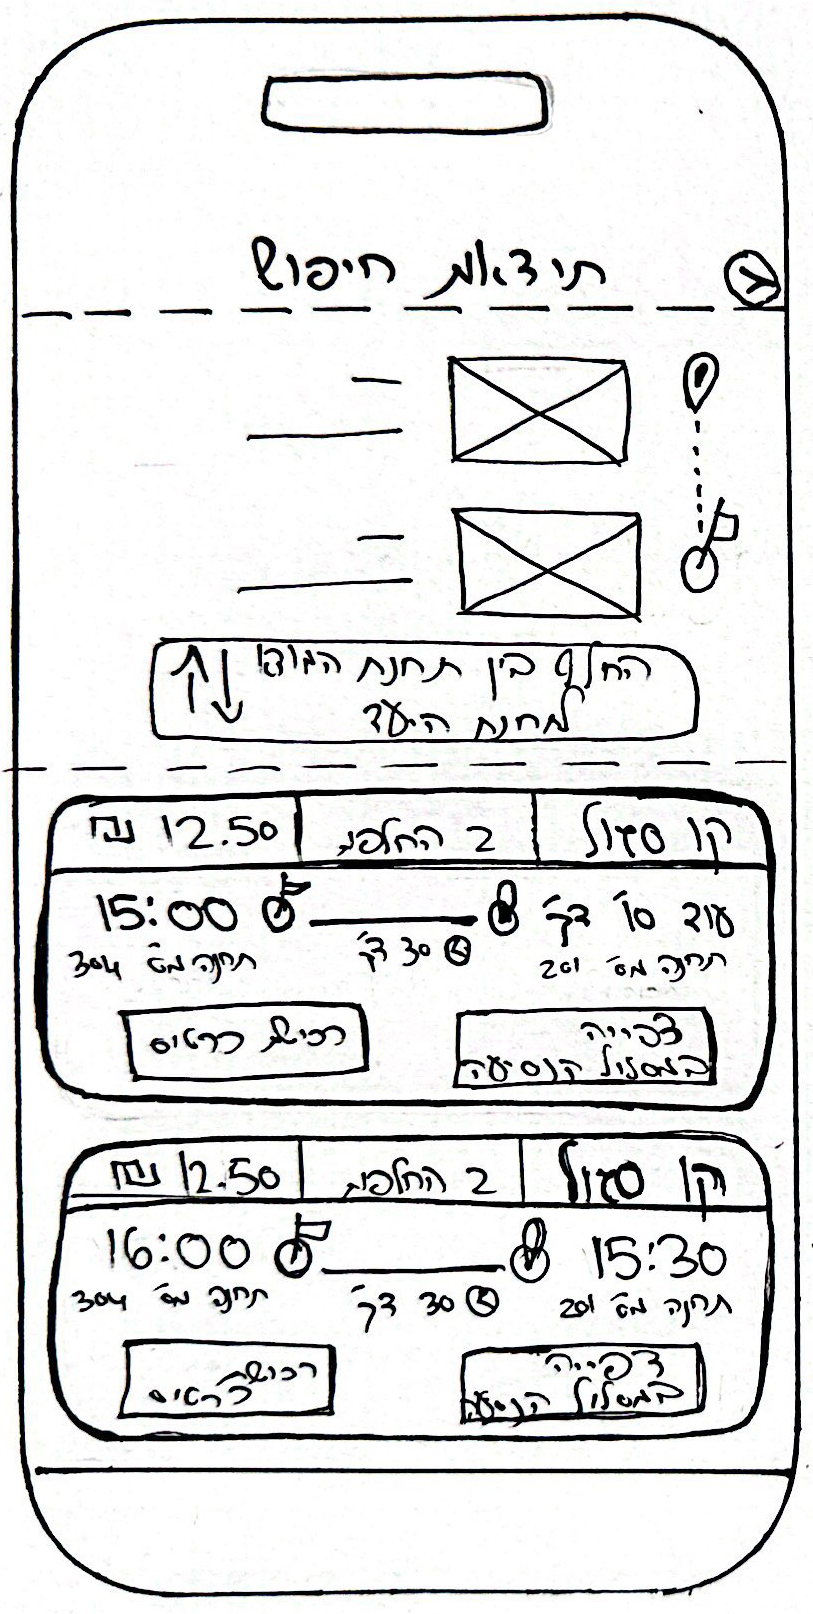 תוצאות חיפוש
החלף בין תחנת המוצא
לתחנת היעד
קו סגול 2 החלפות 12.50 ₪
עוד 10 דק׳ 15:00
תחנה מס׳ 201 30 דק׳ תחנה מס׳ 304
צפייה
במסלול הנסיעה
רכישת כרטיס
קו סגול 2 החלפות 12.50 ₪
15:30 16:00
תחנה מס׳ 201 30 דק׳ תחנה מס׳ 304
צפייה
במסלול הנסיעה
רכישת
כרטיס